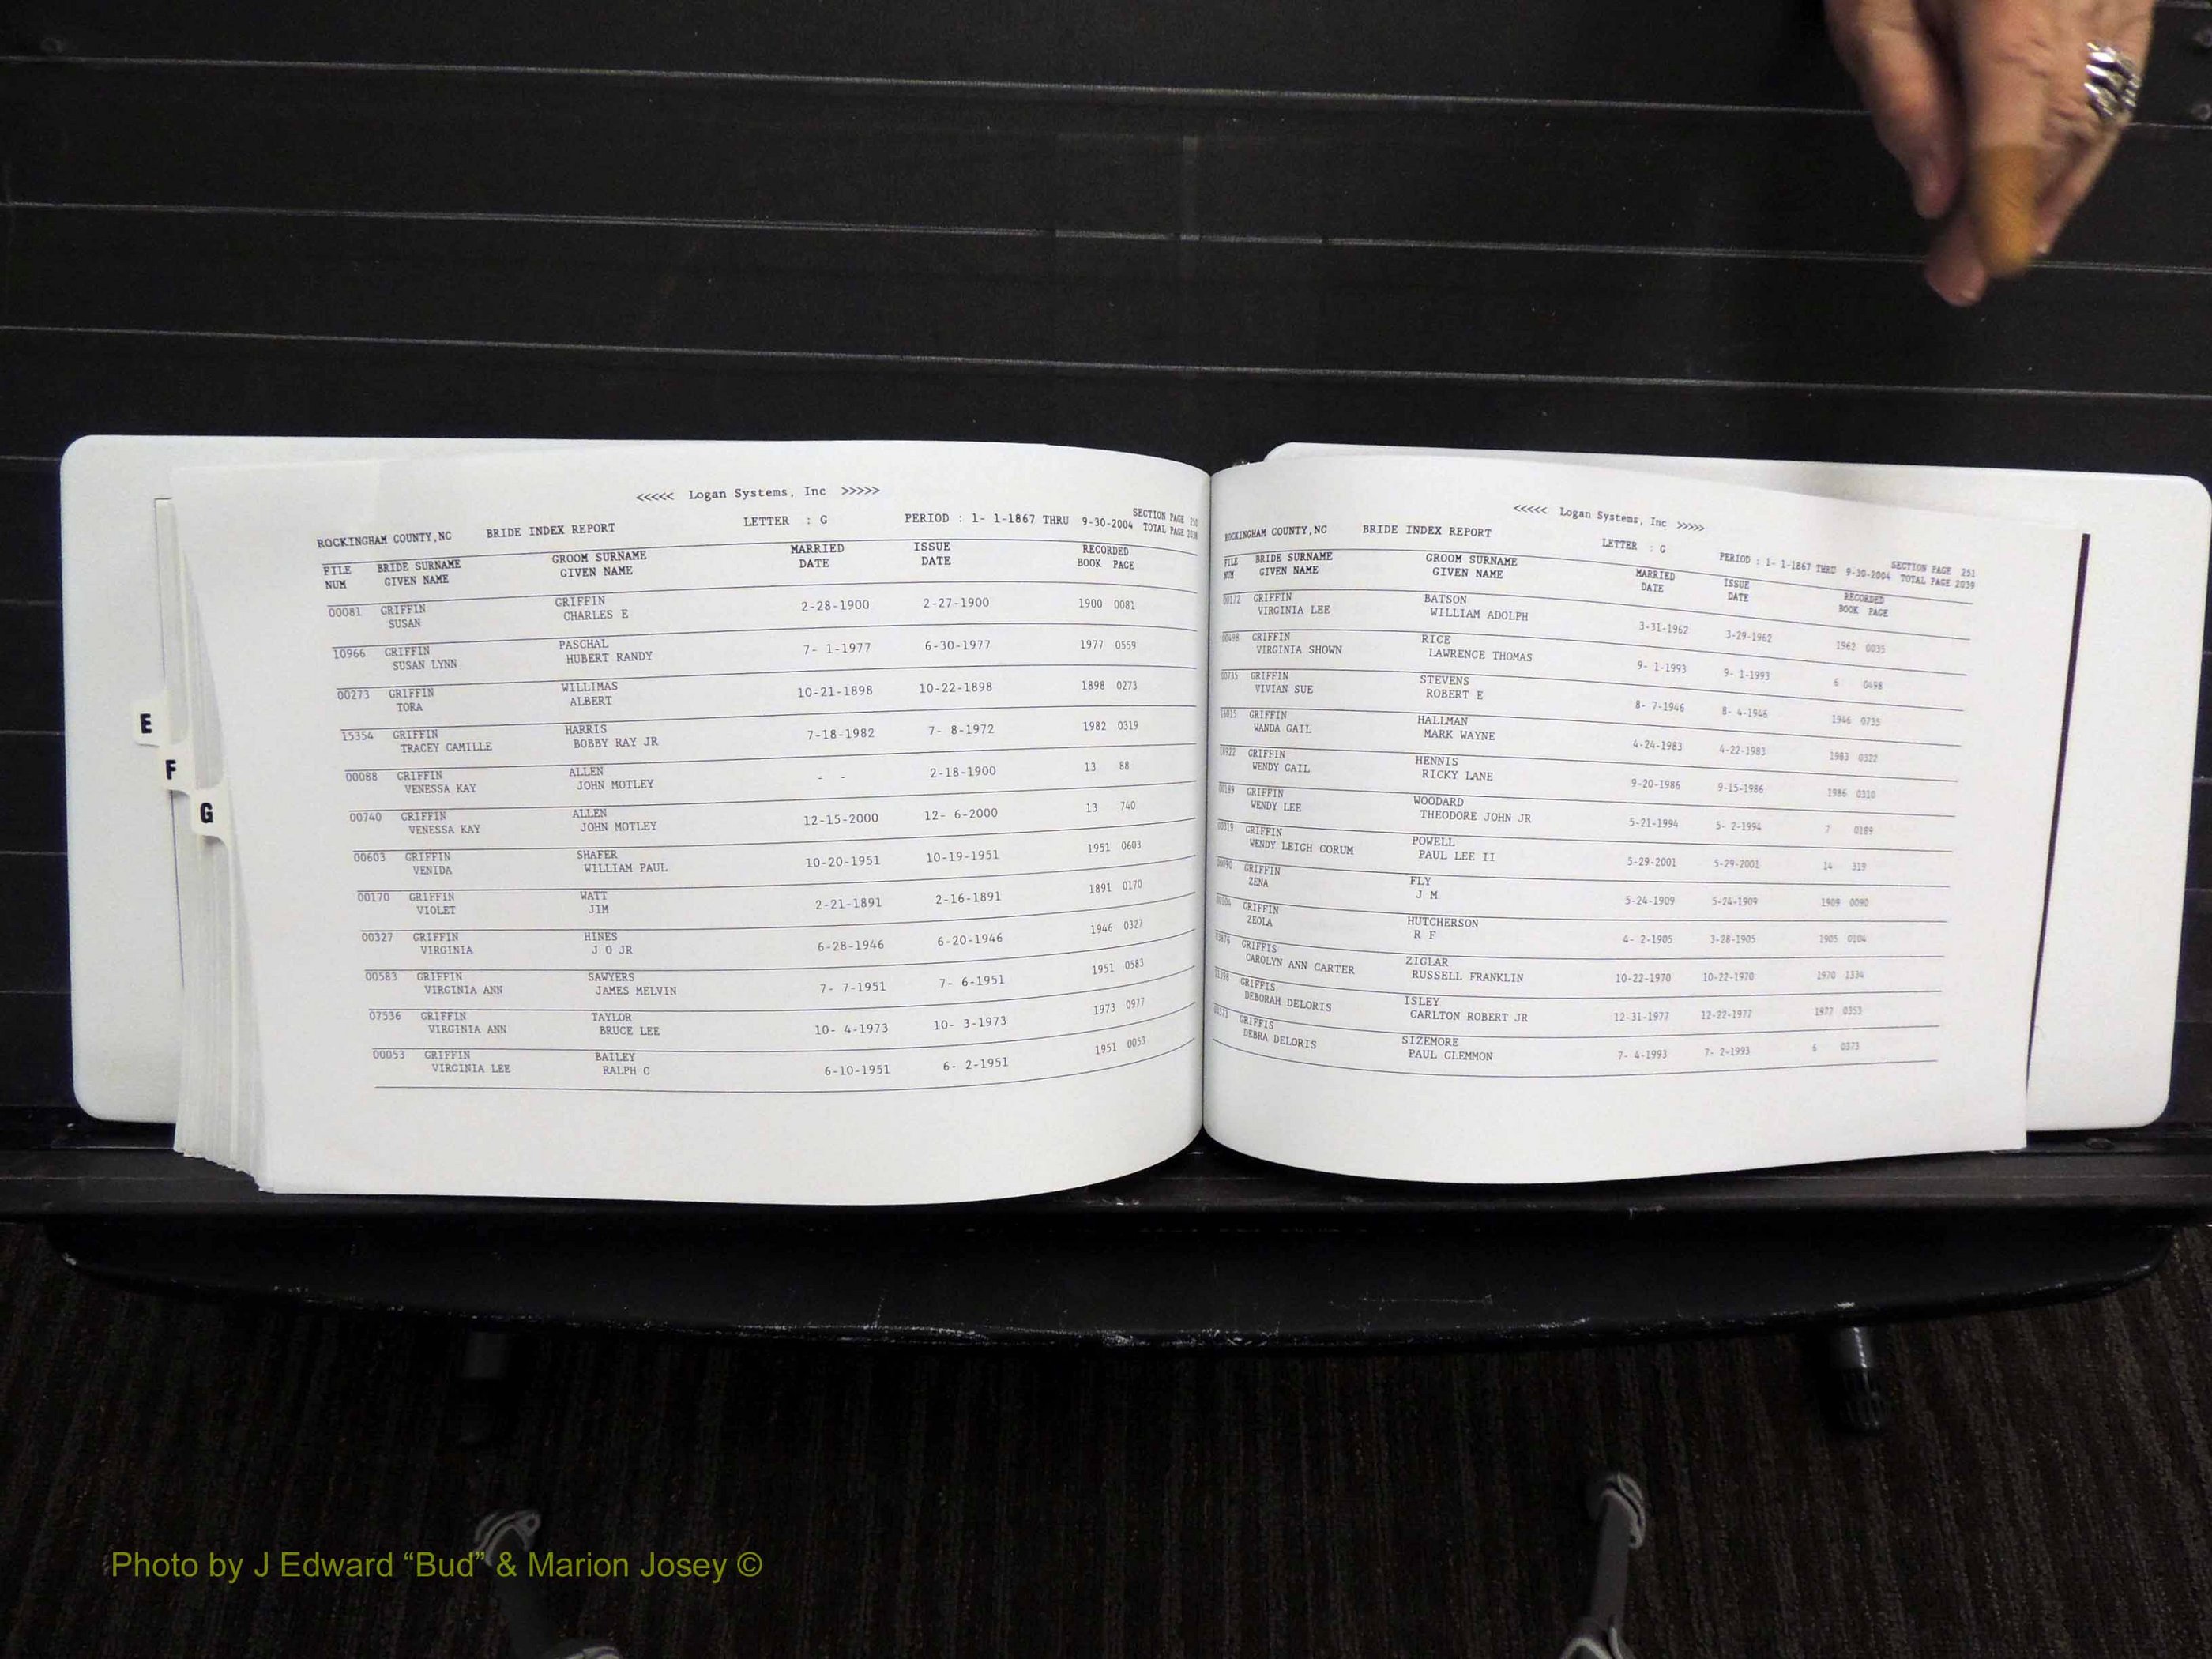 <<<<< Logan Systems, Inc >>>>>
ROCKINGHAM COUNTY,NC BRIDE INDEX REPORT LETTER : G PERIOD : 1- 1-1867 THRU 9-30-2004 SECTION PAGE 250
TOTAL PAGE
FILE BRIDE SURNAME GROOM SURNAME MARRIED ISSUE RECORDED
NUM GIVEN NAME GIVEN NAME DATE DATE BOOK PAGE
00081 GRIFFIN GRIFFIN 2-28-1900 2-27-1900 1900 0081
SUSAN CHARLES E
10966 GRIFFIN PASCHAL 7- 1-1977 6-30-1977 1977 0559
SUSAN LYNN HUBERT RANDY
00273 GRIFFIN WILLIMAS 10-21-1898 10-22-1898 1898 0273
TORA ALBERT
15354 GRIFFIN HARRIS 7-18-1982 7- 8-1972 1982 0319
TRACEY CAMILLE BOBBY RAY JR
00088 GRIFFIN ALLEN - - 2-18-1900 13 88
VENESSA KAY JOHN MOTLEY
00740 GRIFFIN ALLEN 12-15-2000 12- 6-2000 13 740
VENESSA KAY JOHN MOTLEY
00603 GRIFFIN SHAFER 10-20-1951 10-19-1951 1951 0603
VENIDA WILLIAM PAUL
00170 GRIFFIN WATT 2-21-1891 2-16-1891 1891 0170
VIOLET JIM
00327 GRIFFIN HINES 6-28-1946 6-20-1946 1946 0327
VIRGINIA J O JR
00583 GRIFFIN SAWYERS 7- 7-1951 7- 6-1951 1951 0583
VIRGINIA ANN JAMES MELVIN
07536 GRIFFIN TAYLOR 10- 4-1973 10- 3-1973 1973 0977
VIRGINIA ANN BRUCE LEE
00053 GRIFFIN BAILEY 6-10-1951 6- 2-1951 1951 0053
VIRGINIA LEE RALPH C
E
F
G
<<<<< Logan Systems, Inc >>>>>
ROCKINGHAM COUNTY,NC BRIDE INDEX REPORT LETTER : G PERIOD : 1- 1-1867 THRU 9-30-2004 SECTION PAGE 251
TOTAL PAGE 2039
FILE BRIDE SURNAME GROOM SURNAME MARRIED ISSUE RECORDED
NUM GIVEN NAME GIVEN NAME DATE DATE BOOK PAGE
00172 GRIFFIN BATSON 3-31-1962 3-29-1962 1962 0035
VIRGINIA LEE WILLIAM ADOLPH
00498 GRIFFIN RICE 9- 1-1993 9- 1-1993 6 0498
VIRGINIA SHOWN LAWRENCE THOMAS
00735 GRIFFIN STEVENS 8- 7-1946 8- 4-1946 1946 0735
VIVIAN SUE ROBERT E
16015 GRIFFIN HALLMAN 4-24-1983 4-22-1983 1983 0322
WANDA GAIL MARK WAYNE
18922 GRIFFIN HENNIS 9-20-1986 9-15-1986 1986 0310
WENDY GAIL RICKY LANE
00189 GRIFFIN WOODARD 5-21-1994 5- 2-1994 7 0189
WENDY LEE THEODORE JOHN JR
00319 GRIFFIN POWELL 5-29-2001 5-29-2001 14 319
WENDY LEIGH CORUM PAUL LEE II
00090 GRIFFIN FLY 5-24-1909 5-24-1909 1909 0090
ZENA J M
00104 GRIFFIN HUTCHERSON 4- 2-1905 3-28-1905 1905 0104
ZEOLA R F
GRIFFIS ZIGLAR 10-22-1970 10-22-1970 1970 1334
CAROLYN ANN CARTER RUSSELL FRANKLIN
GRIFFIS ISLEY 12-31-1977 12-22-1977 1977 0353
DEBORAH DELORIS CARLTON ROBERT JR
00373 GRIFFIS SIZEMORE 7- 4-1993 7- 2-1993 6 0373
DEBRA DELORIS PAUL CLEMMON
Photo by J Edward “Bud” & Marion Josey ©